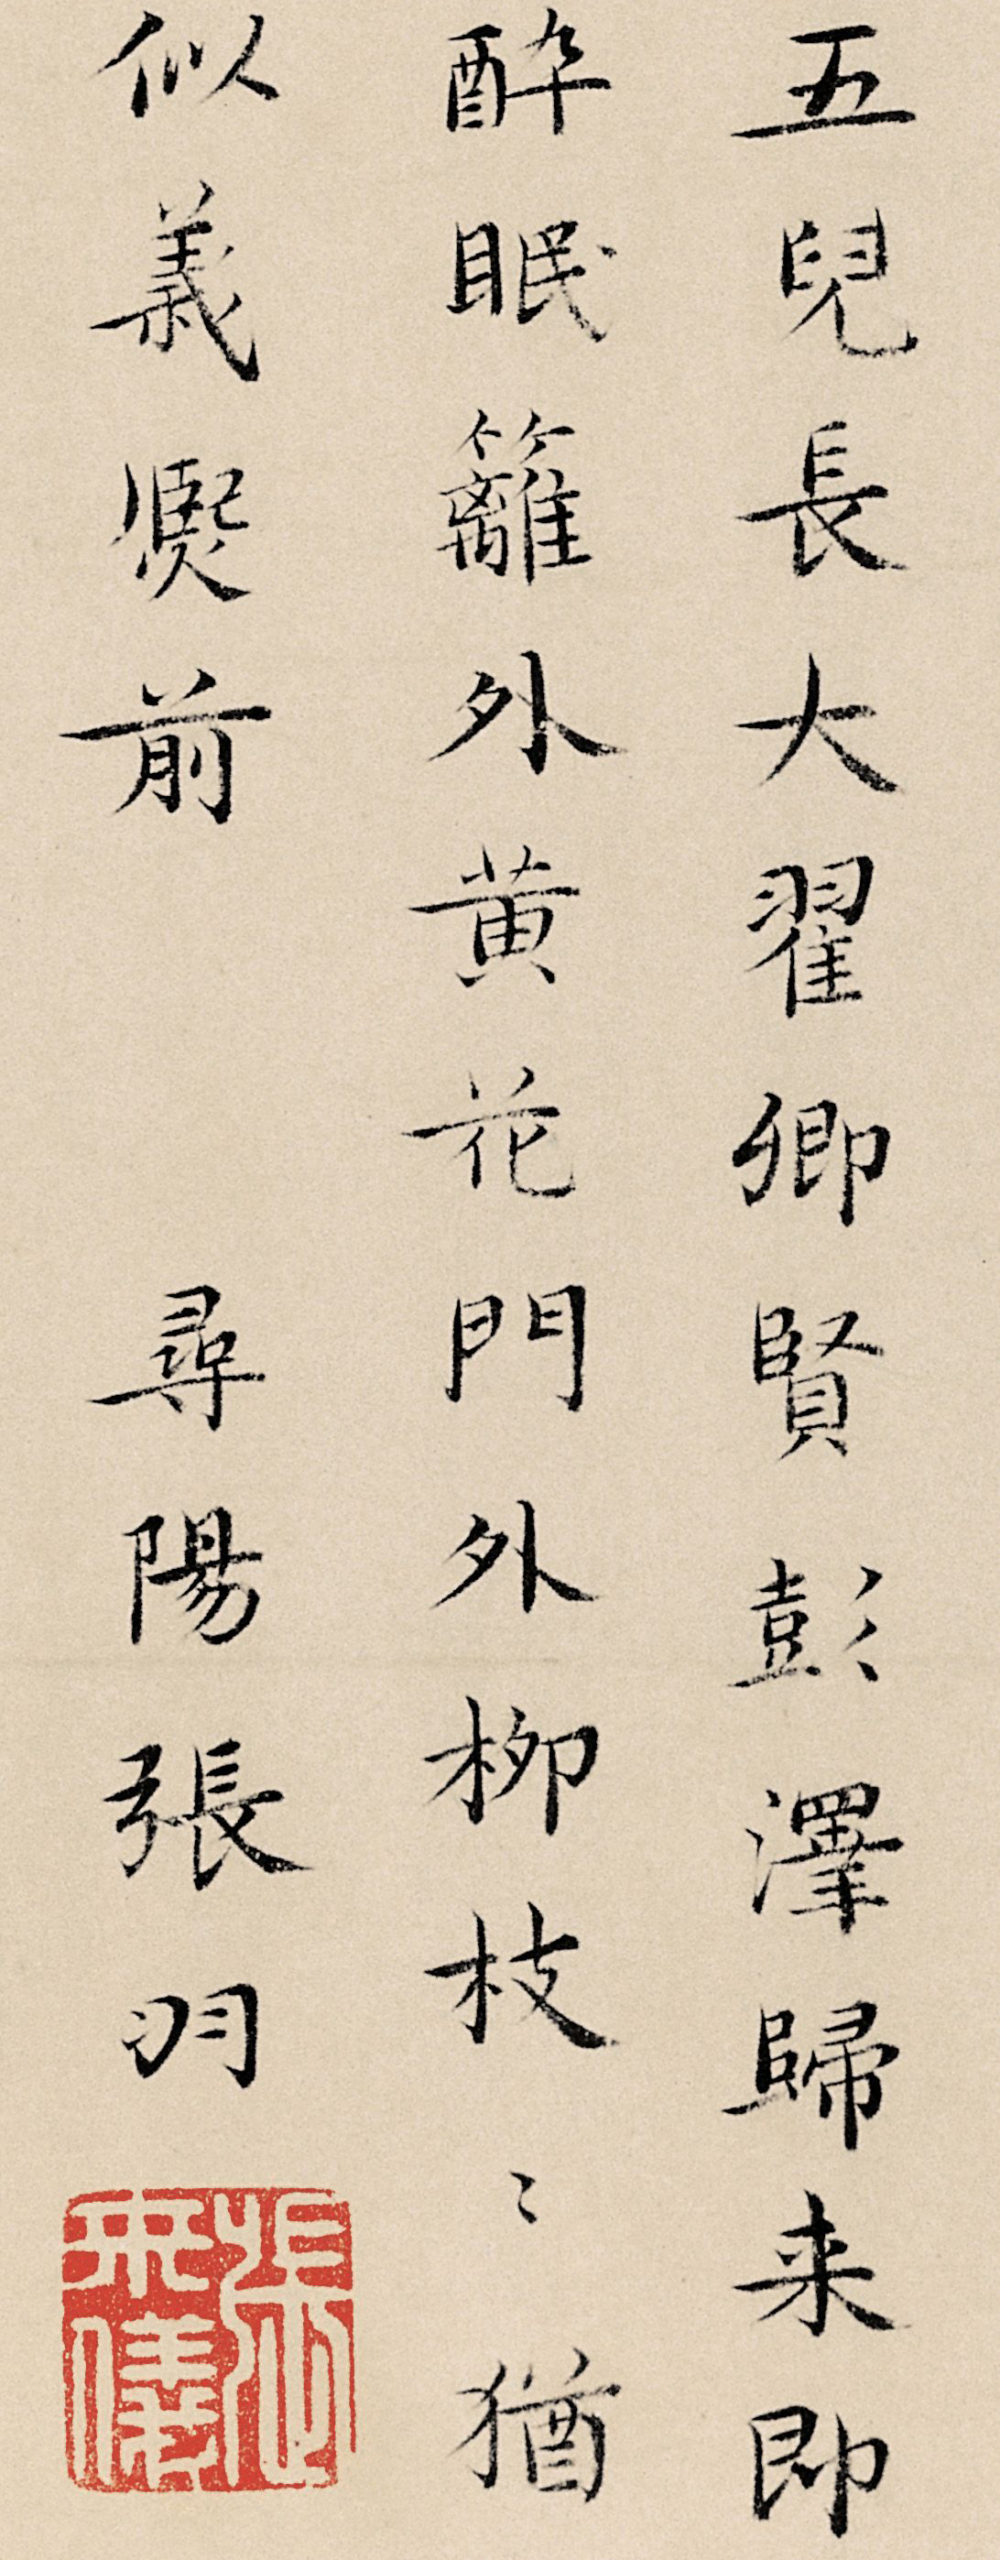 五兒長大翟卿賢彭澤歸来即
醉眠籬外黄花門外柳枝〻猶
似義熈前　尋陽張羽